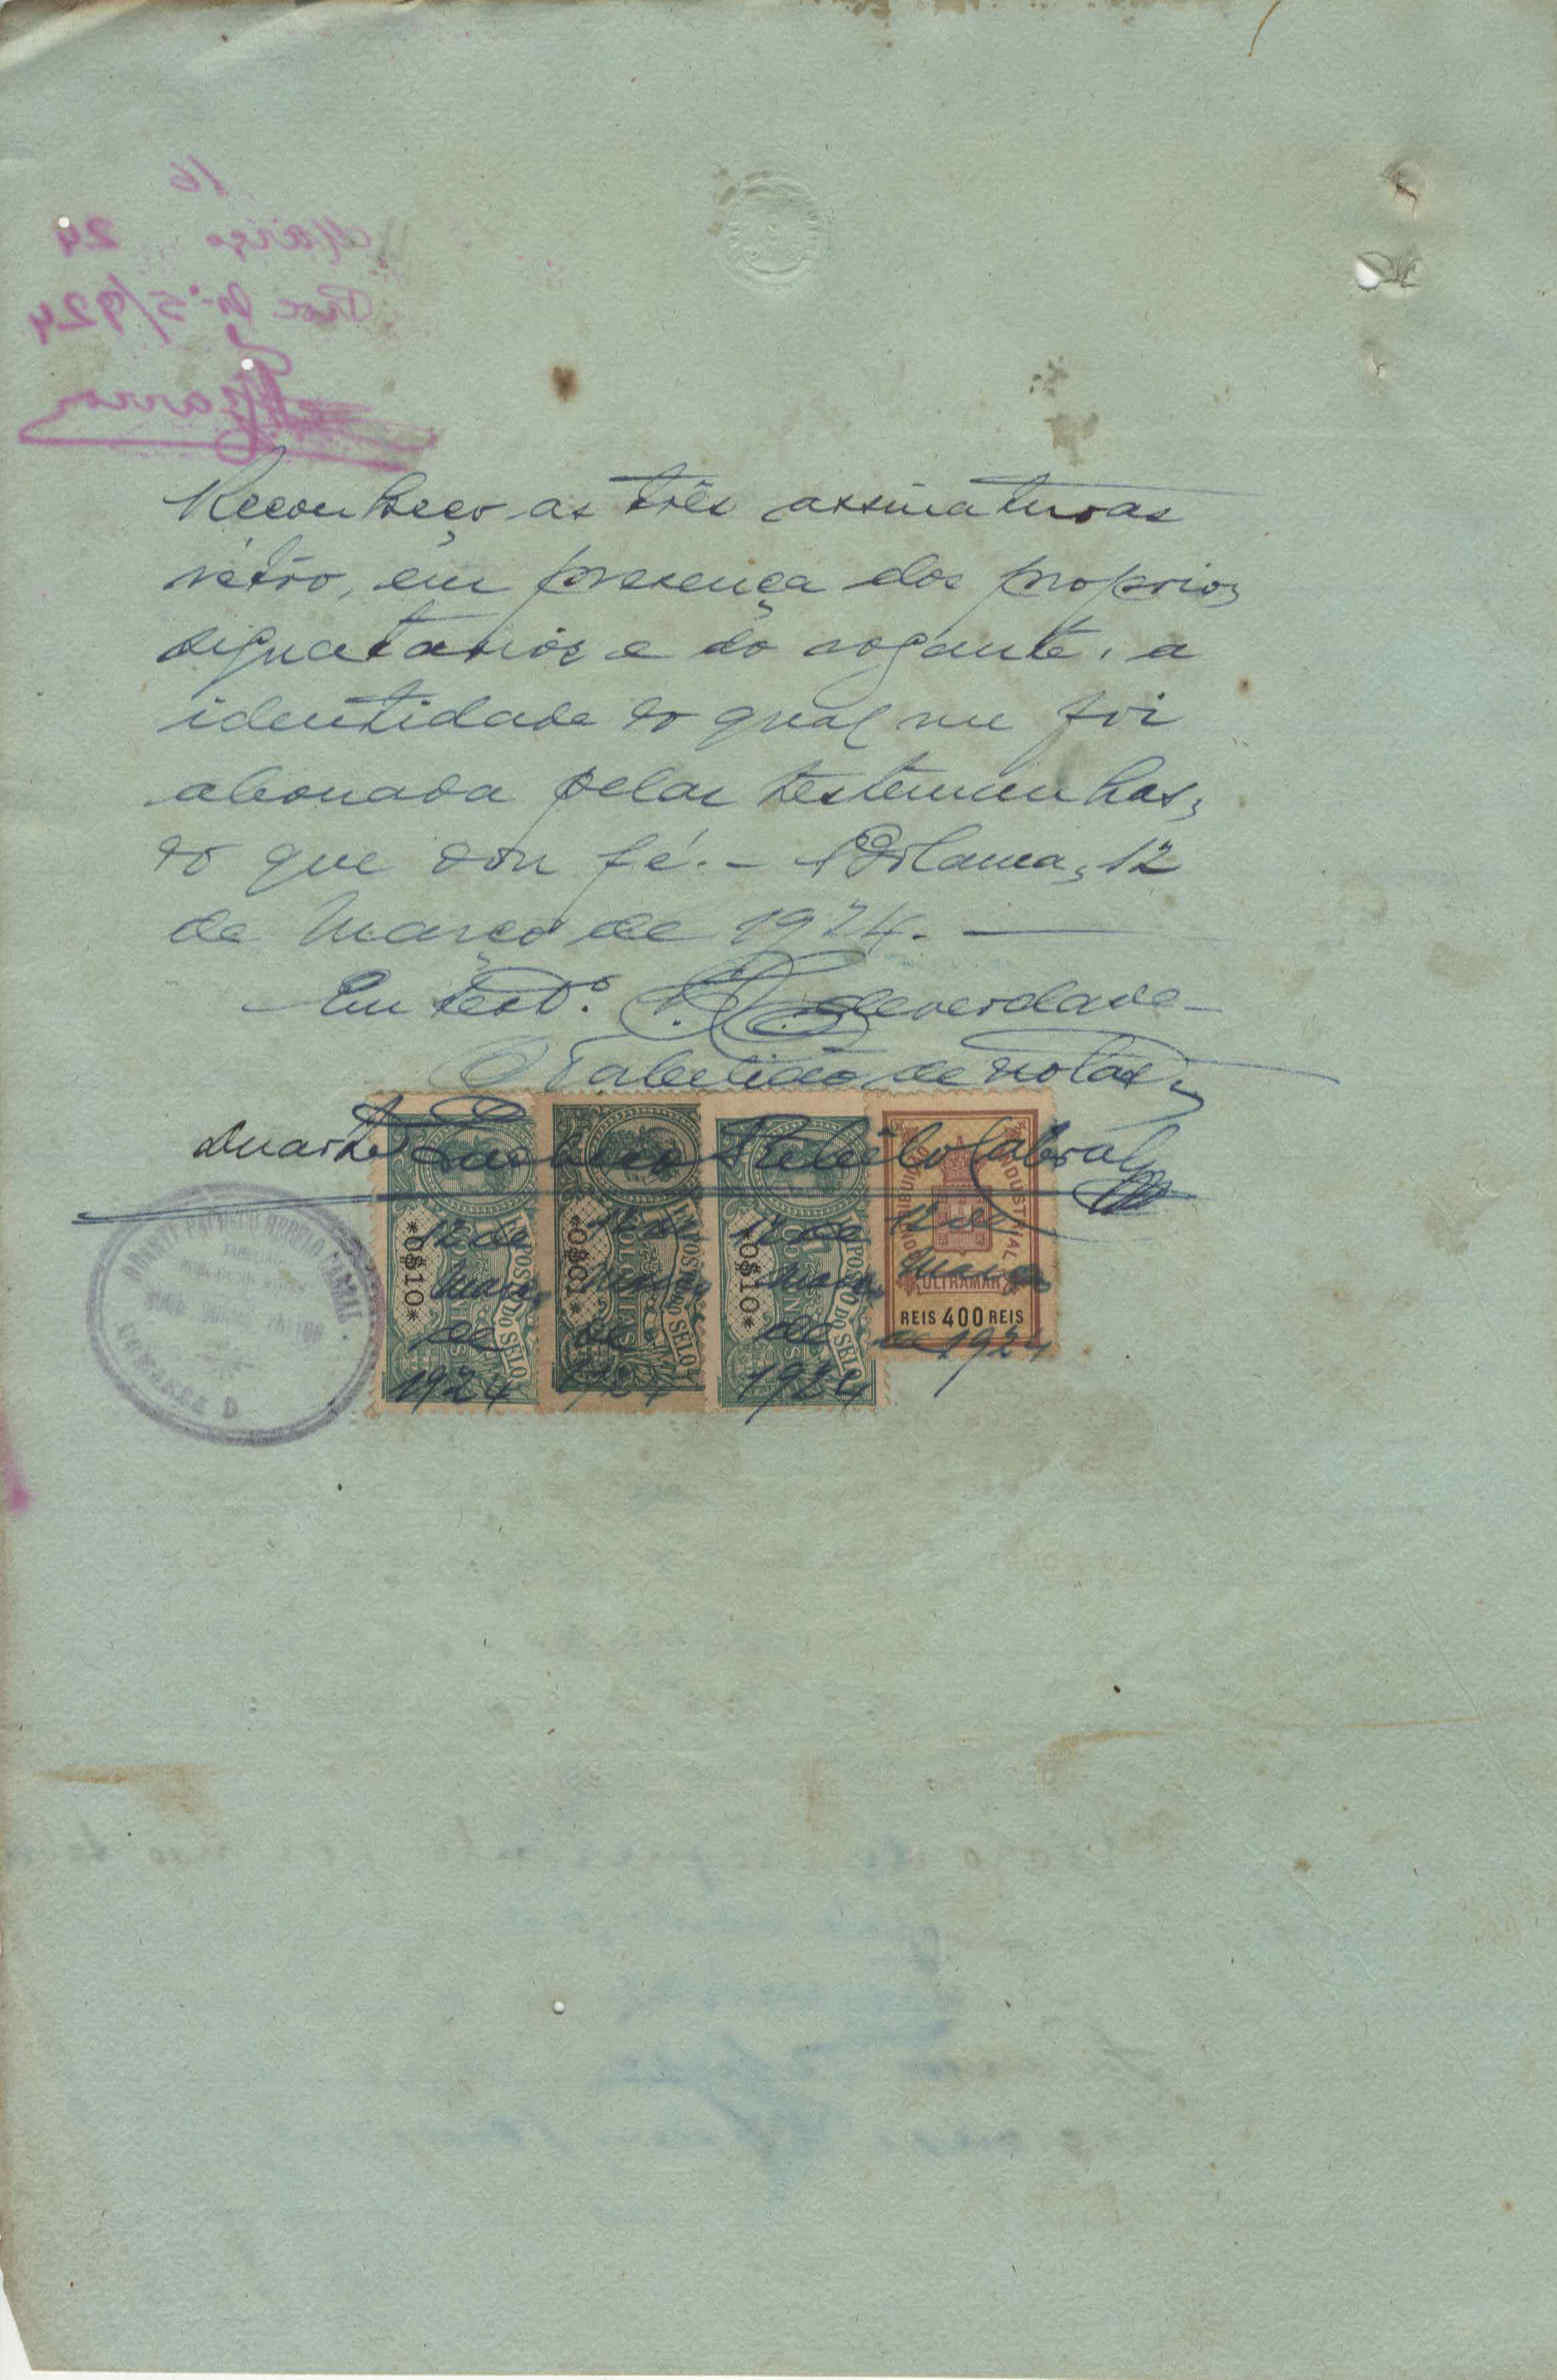 Reconheço as três assinaturas
retro, em presença dos proprios
signatarios e do rogante, a
identidade do qual me foi
abonada pelas testemunhas,
do que dou fé. - Bolama, 12
de Março de 1924. -
Em test.º de verdade -
O Tabelião de notas,
Duarte Pacheco Rebêlo Cabral
12 de Março de 1924
12 de Março de 1924
12 de Março de 1924
12 de Março de 1924
*0$10*
IMPOSTO DO SELO
COLONIAS
*0$01*
IMPOSTO DO SELO
COLONIAS
*0$10*
IMPOSTO DO SELO
COLONIAS
CONTRIBUIÇÃO INDUSTRIAL
ULTRAMAR
REIS 400 REIS
16
Março 24
Proc Nº 5/924